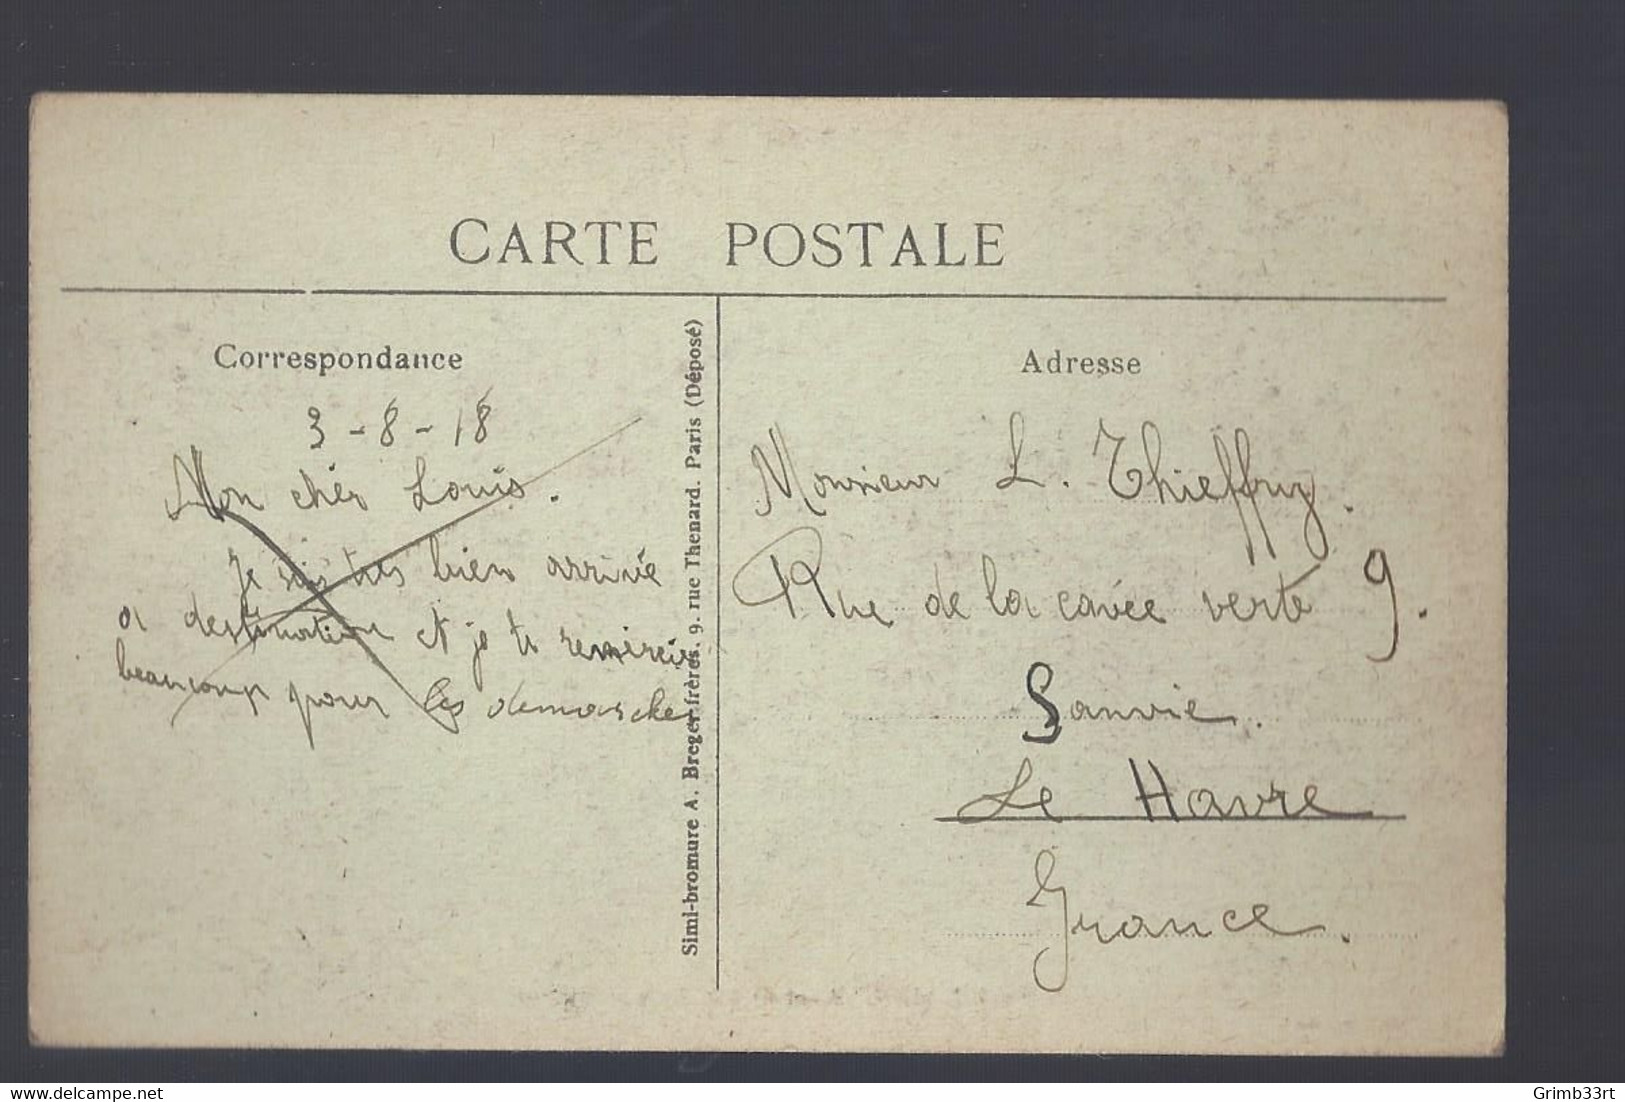 CARTE POSTALE
Correspondance
3-8-18
Mon cher Louis.
Je suis tres bien arrivée
a destination et je te remercie
beaucoup pour les demarches
Simi-bromure A. Breger frères. 9. rue Thenard. Paris (Déposé)
Adresse
Monsieur L. Thieffry.
Rue de la cavée verte 9.
Sanvic.
Le Havre
France.
delcampe.net
Grimb33rt